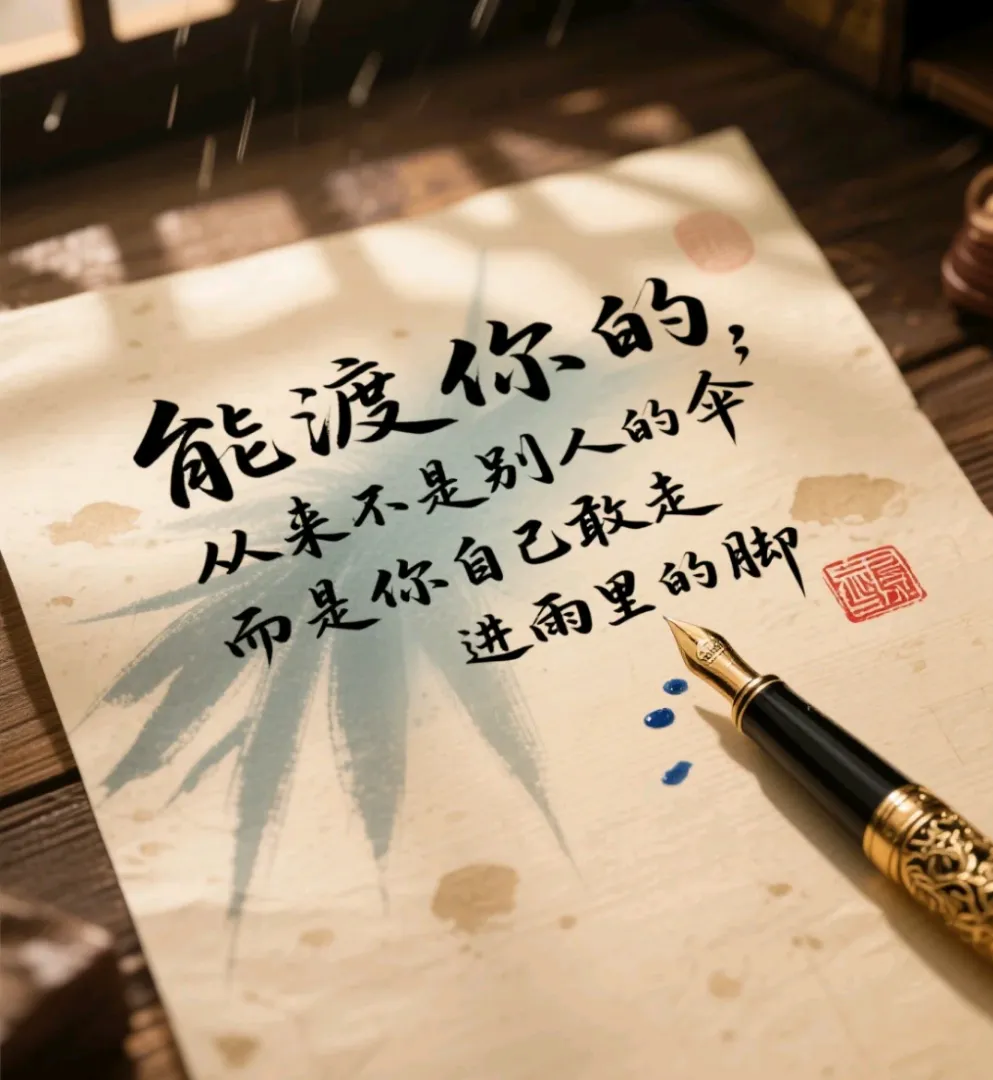 能渡你的；
从来不是别人的伞
而是你自己敢走
进雨里的脚